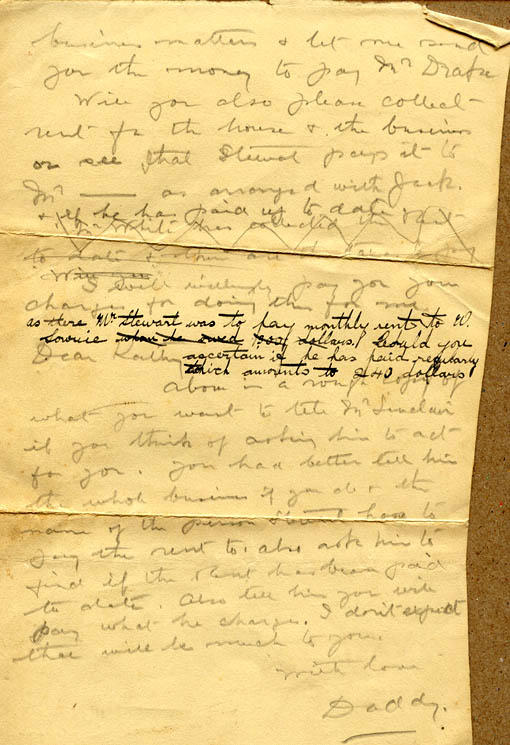 business matters & let me send
you the money to pay Mr Drake
Will you also please collect
rent for the house & the business
or see that Stewart pays it to
Mr —— as arranged with Jack.
& if he has paid up to date
has collected the rent
to date &
Will you
I will willingly pay you your
charges for doing this for me
as there Mr Stewart was to pay monthly rent to W.
when he owed dollars. Could you
Dear Kathy ascertain if he has paid regularly
which amounts to 240 dollars
Above is a rough copy of
what you want to tell Mr Sinclair
if you think of asking him to act
for you. You had better tell him
the whole business if you do & the
name of the person Stewart has to
pay the rent to. also ask him to
find if the Rent has been paid
to date. Also tell him you will
pay what he charges. I don't expect
that will be much to you.
with love
Daddy.